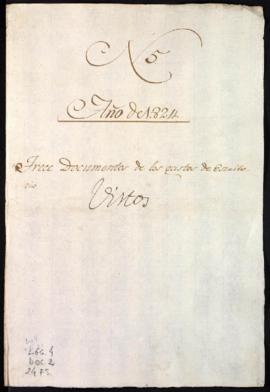 N 5
Año de 1824
Trece Documentos de los gastos de Escrito
rio
Vistos
Leg. 4
Doc 2
24 Fs.